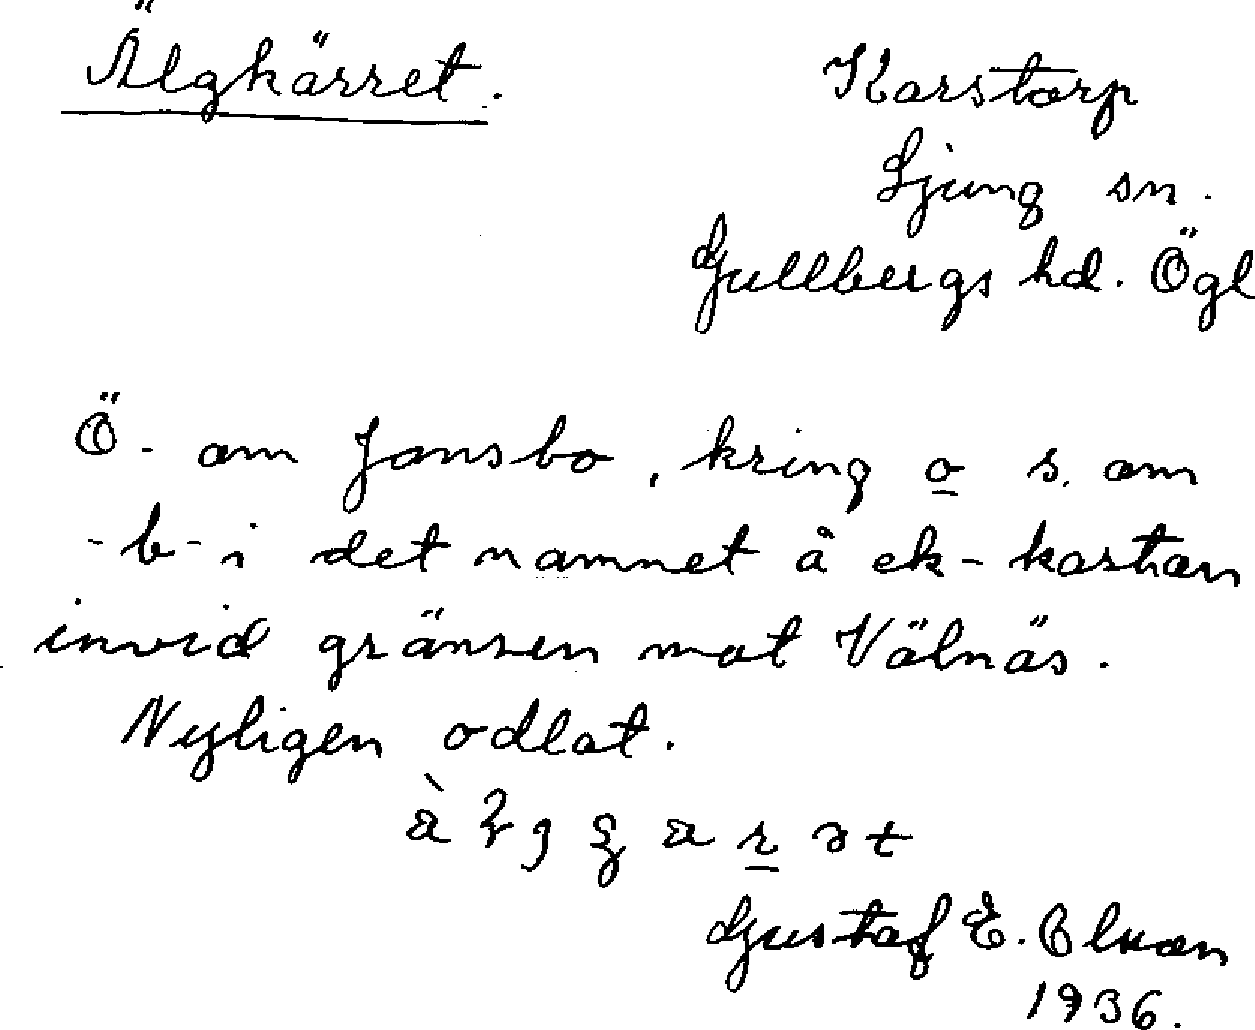 Älgkärret.
Karstorp
Ljung sn.
Gullbergs hd. Ögl
Ö. om Jonsbo, kring o s. om
-b- i det namnet å ek-kartan
invid gränsen mot Välnäs.
Nyligen odlat.
Gustaf E.
1936.